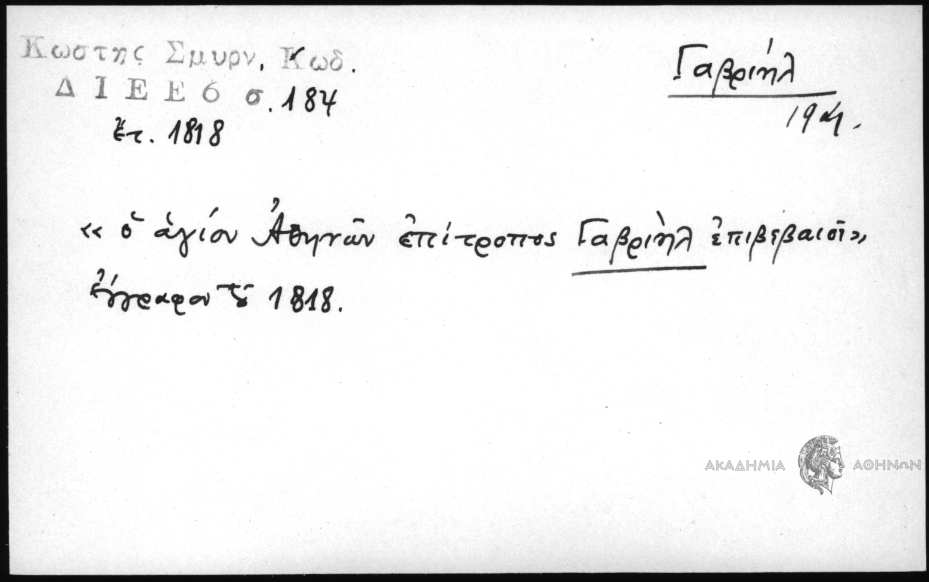 Κωστης Σμυρν, Κωδ.
ΔΙΕΕ6 σ. 184
ἔτ. 1818
Γαβριήλ
19ος
« ὁ ἁγίου Ἀθηνῶν ἐπίτροπος Γαβριὴλ ἐπιβεβαιοῖ»
ἔγγραφον τοῦ 1818.
ΑΚΑΔΗΜΙΑ ΑΘΗΝΩΝ